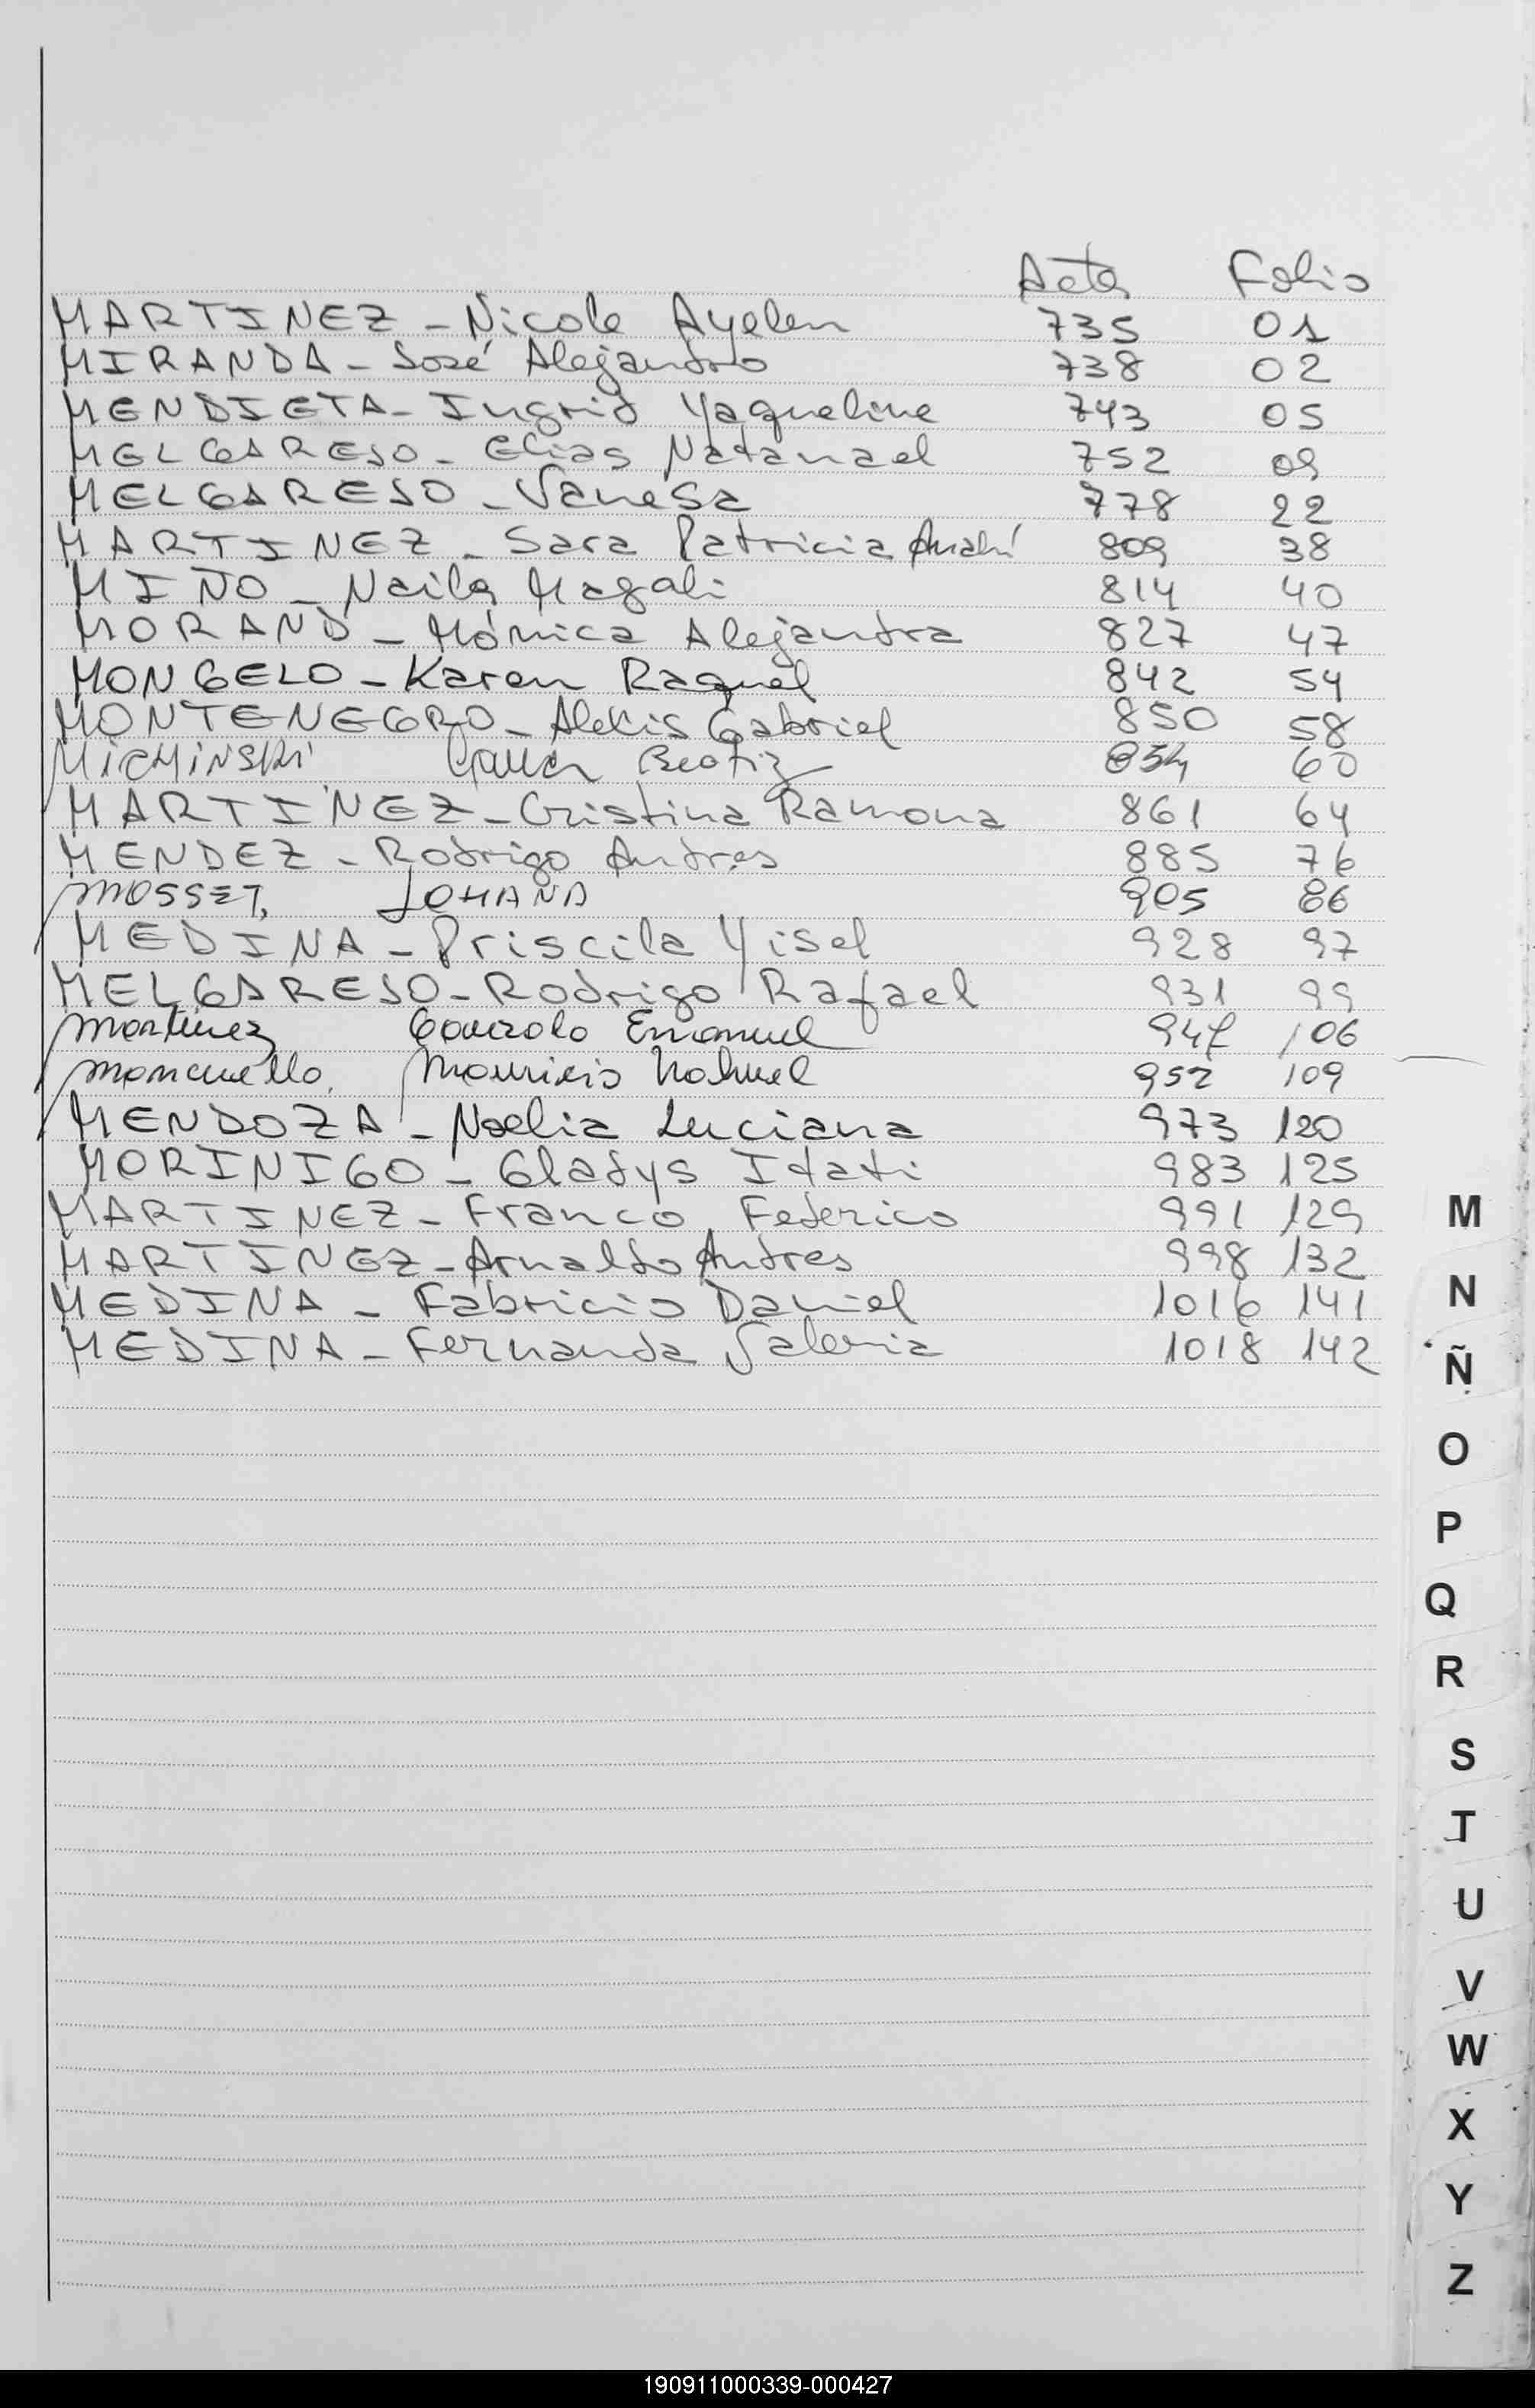 Acta Folio
MARTINEZ - Nicole Ayelen 735 01
MIRANDA - José Alejandro 738 02
MENDIETA - Ingrid Yaqueline 743 05
MELGAREJO - Elias Natanael 752 09
MELGAREJO - Vanesa 778 22
MARTINEZ - Sara Patricia Anahí 809 38
MIÑO - Naila Magali 814 40
MORAND - Mónica Alejandra 827 47
MONGELO - Karen Raquel 842 54
MONTENEGRO - Alexis Gabriel 850 58
MICHINSKI Beatiz 854 60
MARTINEZ - Cristina Ramona 861 64
MENDEZ - Rodrigo Andres 885 76
MOSSET, JOHANA 905 86
MEDINA - Priscila Yisel 928 97
MELGAREJO - Rodrigo Rafael 931 99
Martinez Gonzalo Emanuel 947 106
Mancuello, Mauricio Nahuel 952 109
MENDOZA - Noelia Luciana 973 120
MORINIGO - Gladys Itati 983 125
MARTINEZ - Franco Federico 991 129
MARTINEZ - Arnaldo Andres 998 132
MEDINA - Fabricio Daniel 1016 141
MEDINA - Fernanda Valeria 1018 142
M
N
Ñ
O
P
Q
R
S
T
U
V
W
X
Y
Z
190911000339-000427